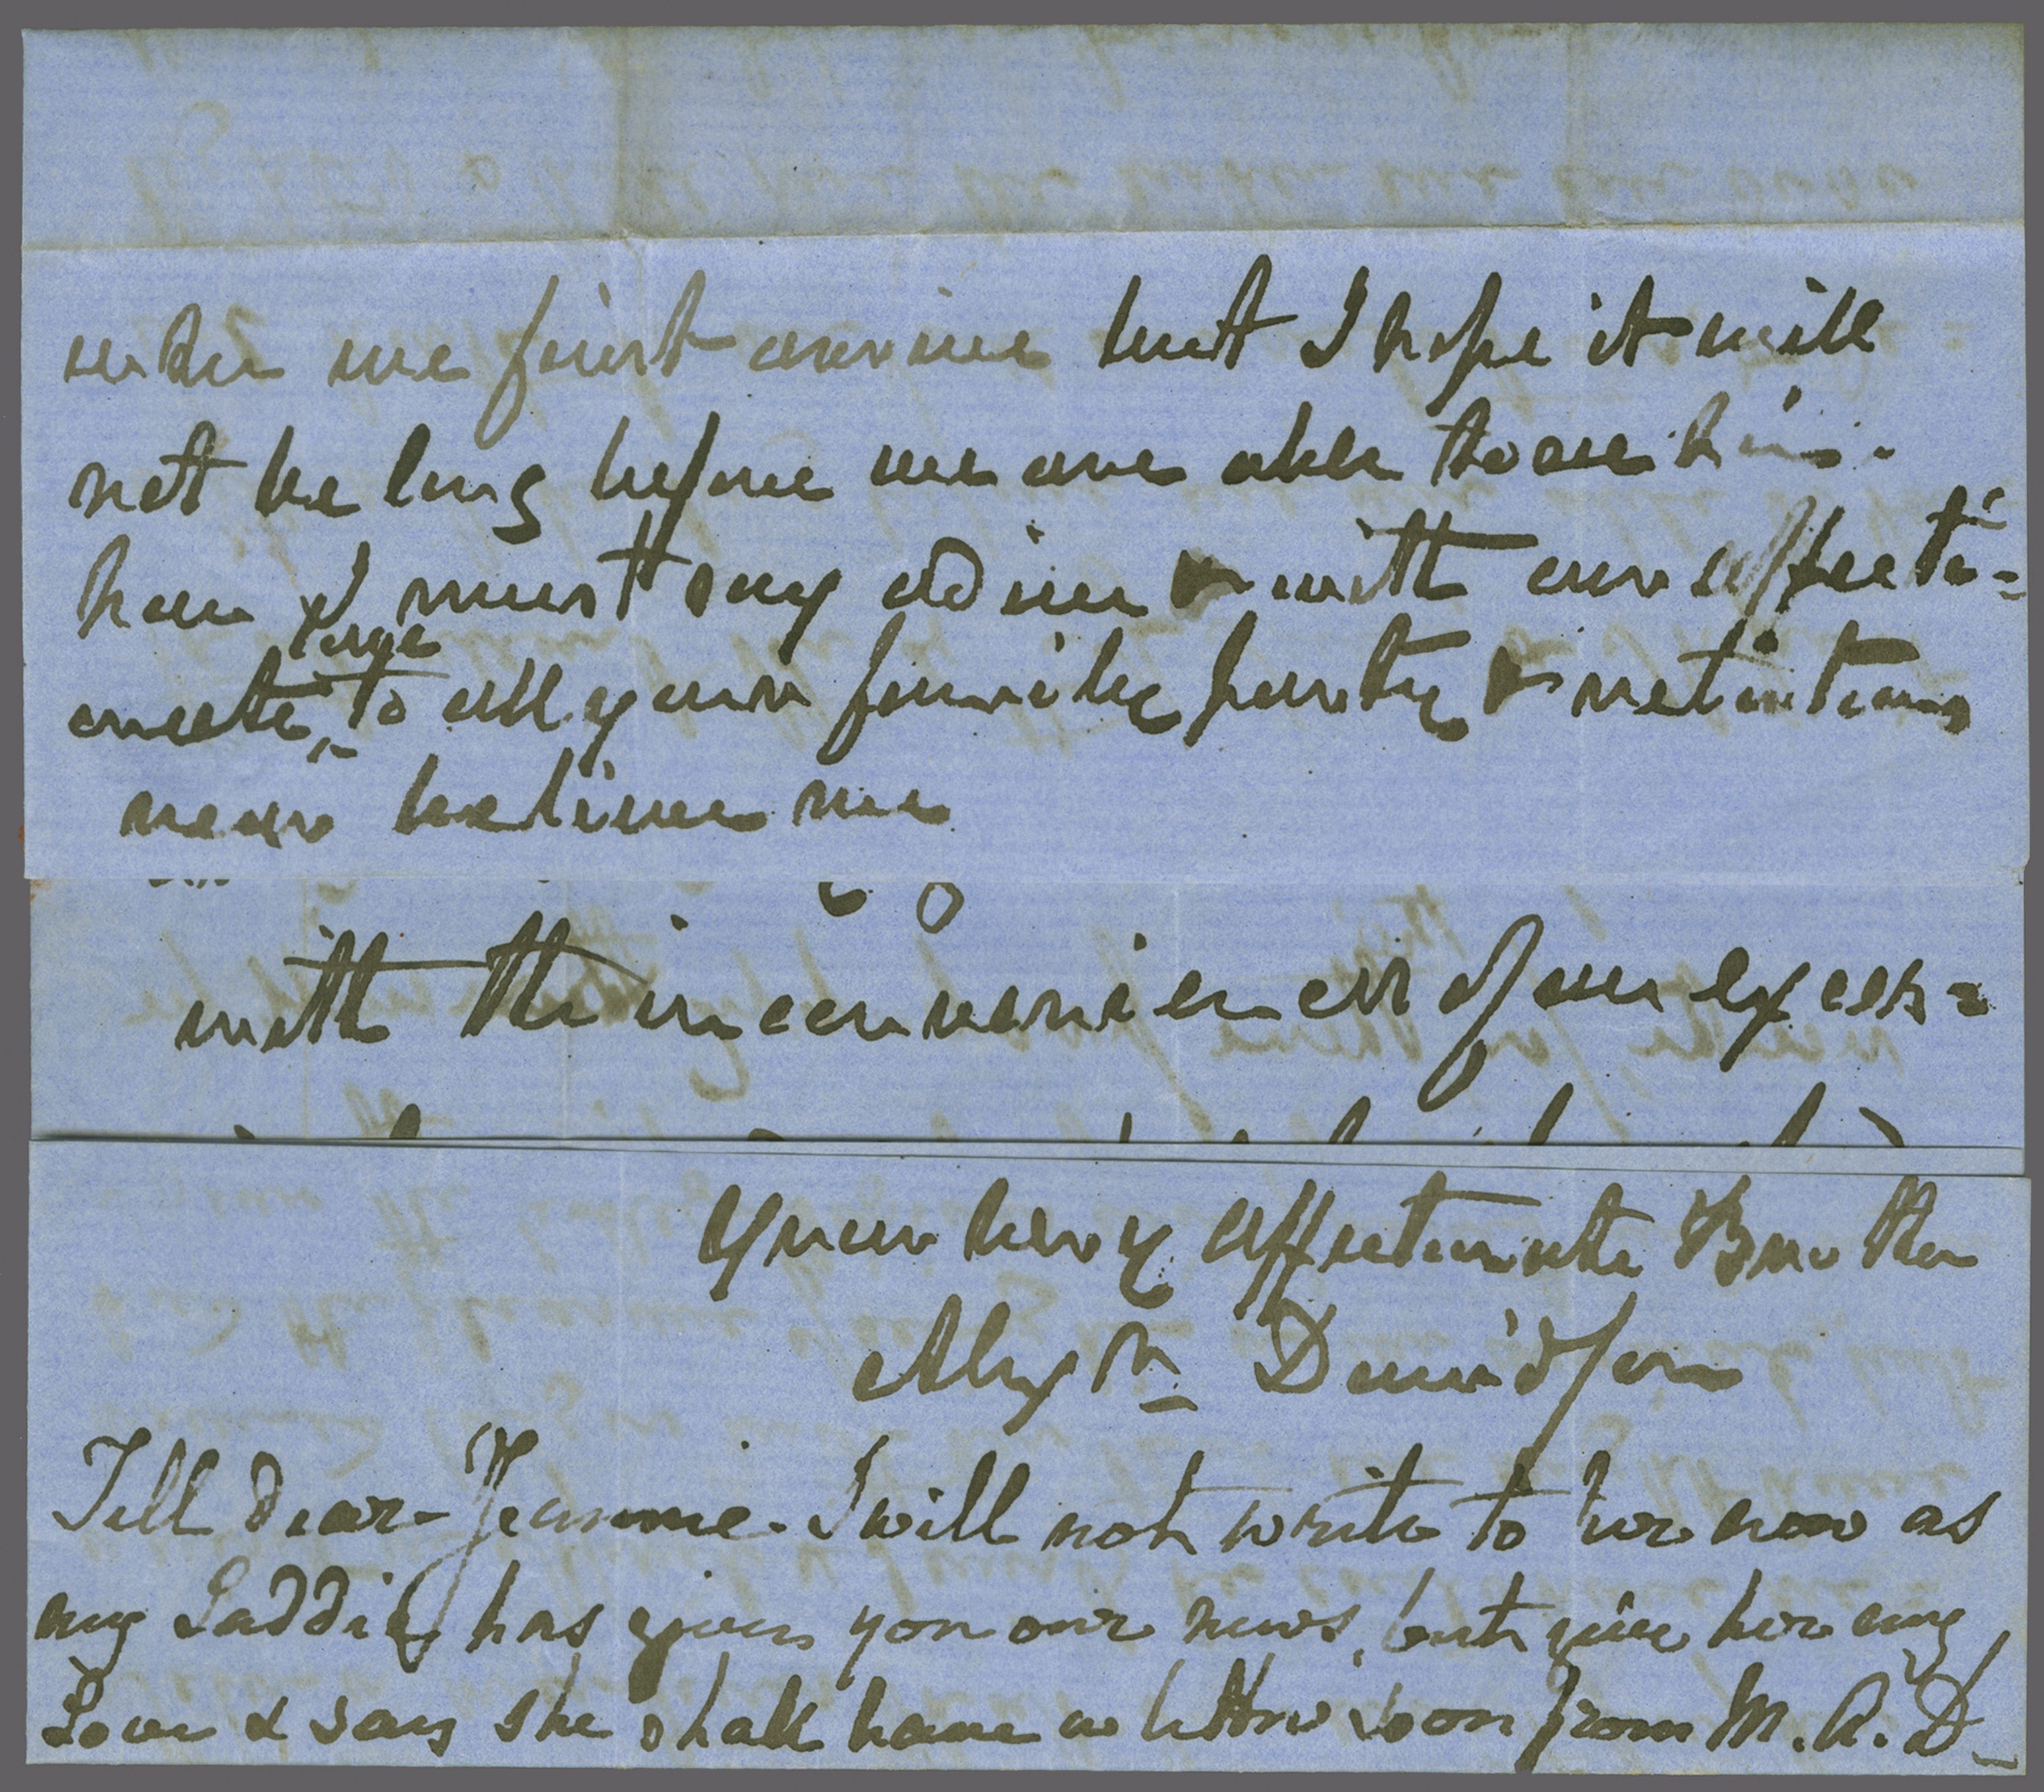 when we first arrive but I hope it will
not be long before we are able to see him.
now I must say adieu & with our affecti=
onate love to all your family party & relations
near believe me
with the inconveniences of our excess=
Your very affectionate Brother
Alexr Davidson
Tell dear Jeannie. I will not write to her now as
my Laddie has given you our news, but give her my
Love & say she shall have a letter soon from M. A. D